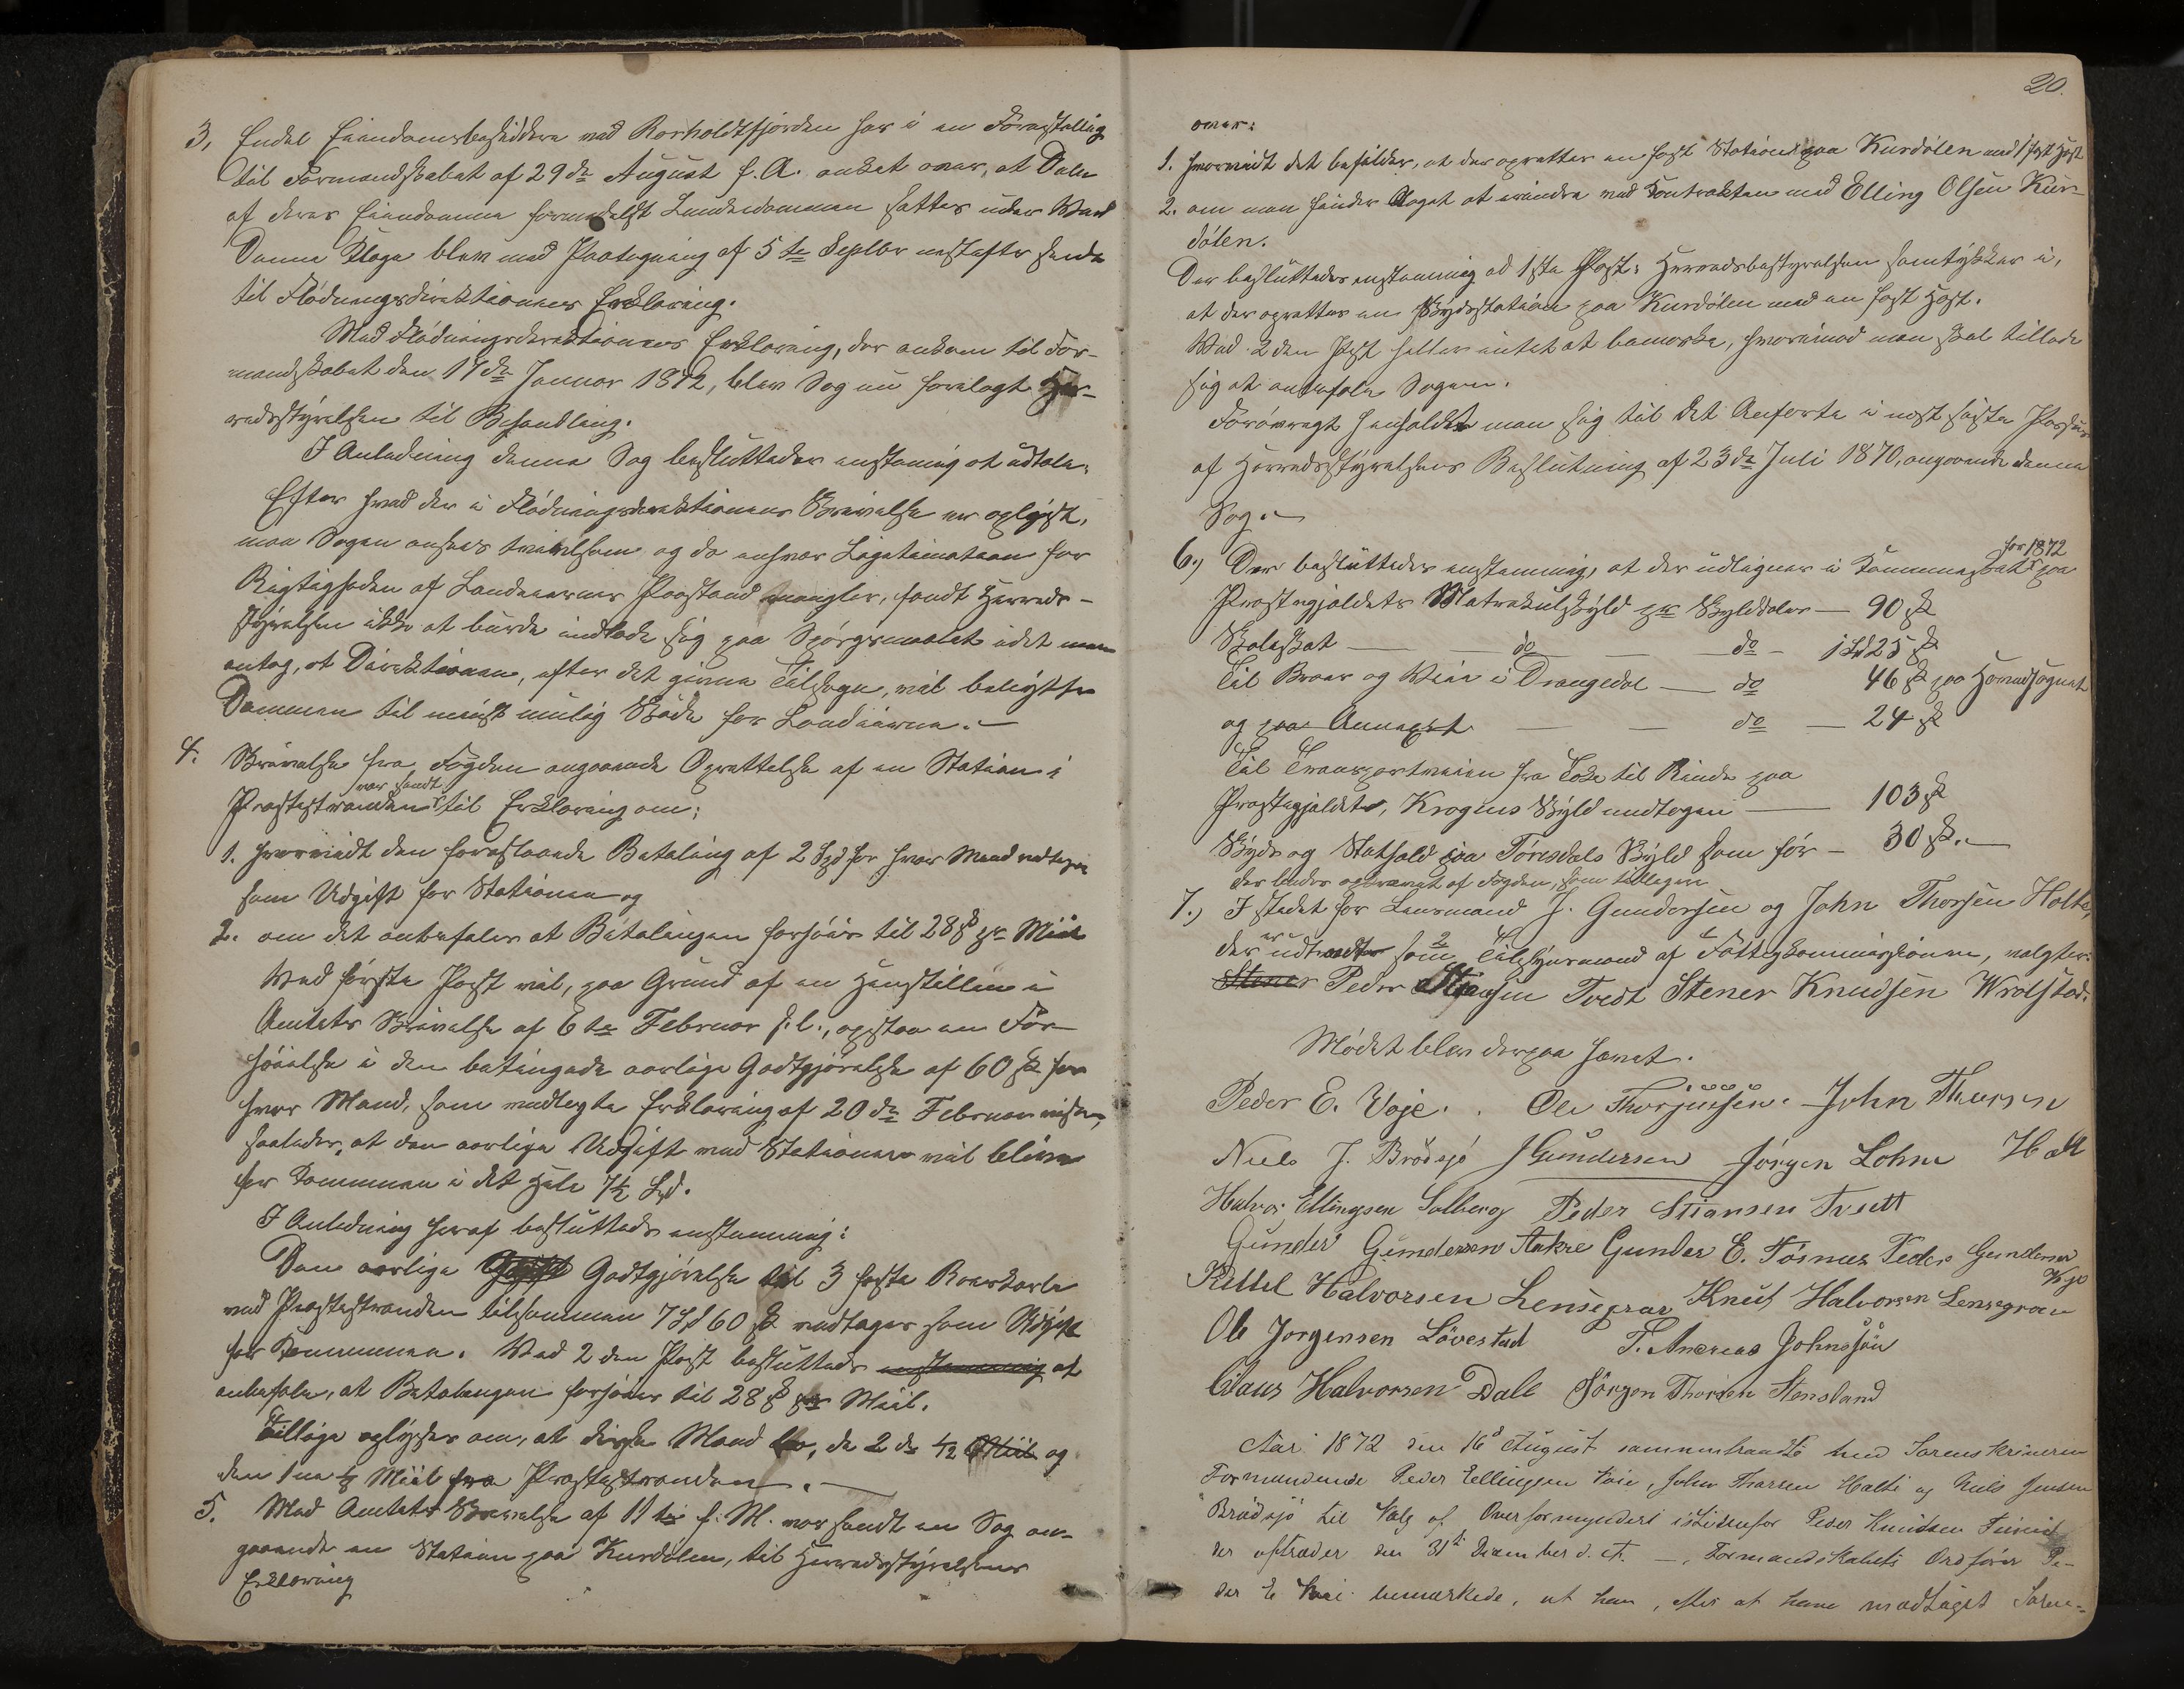 3, Endel Eiendomsbesiddere ved Rorholdtfjorden har i en Forestilling
til Formandskabet af 29de August f. A. anket over, at Dele
af deres Eiendomme formedelst Lundedammen sattes under Vand
Denne Klage blev med Paategning af 5te Septbr nestefter sendt
til Flødningsdirektionens Erklæring.
Med Flødningsdirektionens Erklæring, der ankom til For-
mandskabet den 17de Januar 1872, blev Sag nu forelagt Her-
redsstyrelsen til Behandling.
I Anledning denne Sag besluttedes enstemig at udtale:
Efter hvad der i Flødningsdirektionens Skrivelse er oplyst,
maa Sagen ansees tvivlsom og da enhver Legitimation for
Rigtigheden af Landeiernes Paastand mangler, fandt Herreds-
styrelsen ikke at burde indlade sig paa Spørgsmaalet idet man
antog, at Direktionen, efter det givne Tilsagn, vil benytte
Dammen til mindst mulig Skade for Landeierne. —
4. Skrivelse fra Fogden angaaende Oprettelse af en Station i
var sendt
Prestestranden til Erklæring om:
1. hvorvidt den foreslaaede Betaling af 2 Spd for hver Mand vedtages
som Udgift for Stationen og
2. om det anbefales at Betalingen forhøies til 28 ß pr Miil
Ved første Post vil, paa Grund af en Henstillen i
Amtets Skrivelse af 6te Februar f. l., opstaa en For-
høielse i den betingede aarlige Godtgjørelse af 60 ß for
hver Mand, som vedlagte Erklæring af 20de Februar viser,
saaledes, at den aarlige Udgift ved Stationen vil blive
for Kommunen i det Hele 7½ Spd.
I Anledning heraf besluttedes enstemmig:
Den aarlige Godtgjørelse til 3 faste Roerskarle
ved Prestestranden tilsammen 7 Spd 60 ß vedtages som Udgift
for Kommunen. Ved 2den Post besluttedes enstemmig at
anbefale, at Betalingen forhøies til 28 ß pr Miil.
Tillige oplyses om, at disse Mand bo, de 2 de 1/12 Miil og
den 1ne Miil fra Prestestranden. —
5. Med Amtets Skrivelse af 11te f. M. var sendt en Sag an-
gaaende en Station paa Kurdølen, til Herredsstyrelsens
Erklæring
20.
over:
1. hvorvidt det bifaldes, at der oprettes en fast Station paa Kurdølen med 1 fast Hest
2. om man finder Noget at erindre ved Kontrakten med Elling Olsen Kur-
dølen.
Der besluttedes enstemmig ad 1ste Post: Herredsbestyrelsen samtykker i,
at der oprettes en Skydsstation paa Kurdølen med en fast Hest.
Ved 2den Post haves intet at bemærke, hvorimod man skal tillade
sig at anbefale Sagen.
Forøvrigt henholdt man sig til det Anførte i næst sidste Passus
af Herredsstyrelsens Beslutning af 23de Juli 1870, angaaende denne
Sag. —
6.) Der besluttedes enstemmig, at der udlignes i Kommuneskat for 1872 paa
Prestegjeldets Matrikulskyld pr Skylddaler — 90 ß
Skoleskat — do — do — 1 Spd 25 ß
Til Broer og Veie i Drangedal — do 46 ß paa Hovedsognet
og paa Annexet — — do — 24 ß
Til Transportveien fra Toke til Rinde paa
Prestegjeldet, Krogens Skyld undtagen — 103 ß
Skyds og Stathold paa Tørdals Skyld som før — 30 ß. —
der begge opnævnt af Fogden, som tillagen
7.) I stedet for Lensmand J. Gundersen og John Thorsen Holte,
der er udtraadt som 2 Tilsynsmænd af Fattigkommissionen, valgtes:
Stener Peder Stiansen Tvedt Stener Knudsen Wrolstad.
Mødet blev derpaa hævet.
Peder E. Voje. Ole Thorjussen. John Thorsen
Niels J. Brødsjø JGundersen Jørgen Lohne Holte
Halvor Ellingsen Solberg Peder Stiansen Tvedt
Gunder Gundersen Aakre Gunder E. Førnes Peder Gundersen
Voje
Kittel Halvorsen Lensegrav Knut Halvorsen Lensegrav
Ole Jorgensen Løvestad T. Andreas Johnsøn
Claus Halvorsen Dale Jörgen Thorsen Stensland
Aar 1872 den 16d August sammentraadte hos Sorenskriveren
Formændende Peder Ellingsen Voie, John Thorsen Holte og Niels Jensen
Brødsjø til Valg af Overformynderi istedenfor Peder Knudsen
der aftræder den 31te December d. A. —, Formandskabets Ordfører Pe-
der E Voie bemærkede, at han, efter at have modtaget Soren-